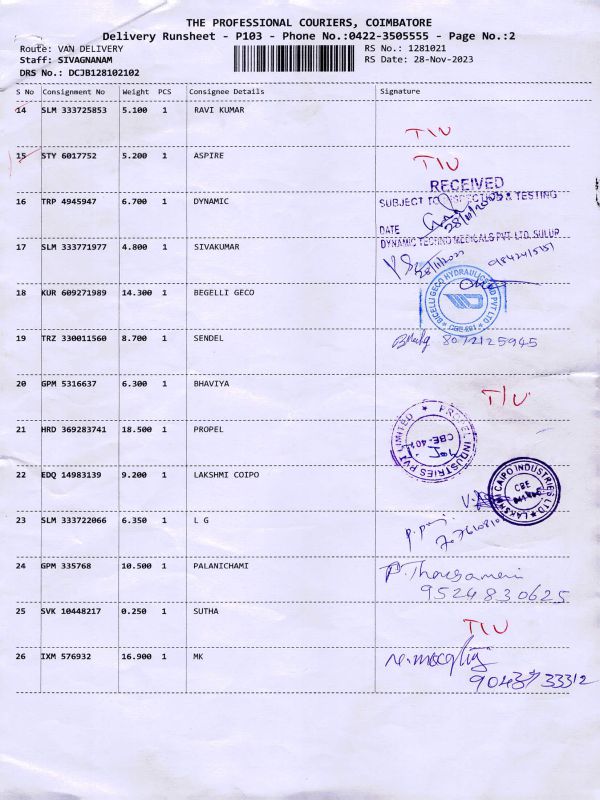 THE PROFESSIONAL COURIERS, COIMBATORE
Delivery Runsheet - P103 - Phone No.:0422-3505555 - Page No.:2
Route: VAN DELIVERY RS No.: 1281021
Staff: SIVAGNANAM RS Date: 28-Nov-2023
DRS No.: DCJB128102102
S No Consignment No Weight PCS Consignee Details Signature
14 SLM 333725853 5.100 1 RAVI KUMAR
T/U
15 STY 6017752 5.200 1 ASPIRE T/U
RECEIVED
SUBJECT TO INSPECTION & TESTING
16 TRP 4945947 6.700 1 DYNAMIC
28/11/2023
DATE
DYNAMIC TECHNO MEDICALS PVT. LTD, SULUR
17 SLM 333771977 4.800 1 SIVAKUMAR
18 KUR 609271989 14.300 1 BEGELLI GECO
BICELLI GECO HYDRAULICS IND PVT LTD
19 TRZ 330011560 8.700 1 SENDEL 8072125945
20 GPM 5316637 6.300 1 BHAVIYA T/U
21 HRD 369283741 18.500 1 PROPEL
PROPEL INDUSTRIES PVT LIMITED
CBE-401
22 EDQ 14983139 9.200 1 LAKSHMI COIPO
LAKSHMI CAIPO INDUSTRIES LTD
CBE
23 SLM 333722066 6.350 1 L G
24 GPM 335768 10.500 1 PALANICHAMI
9524830625
25 SVK 10448217 0.250 1 SUTHA T/U
26 IXM 576932 16.900 1 MK